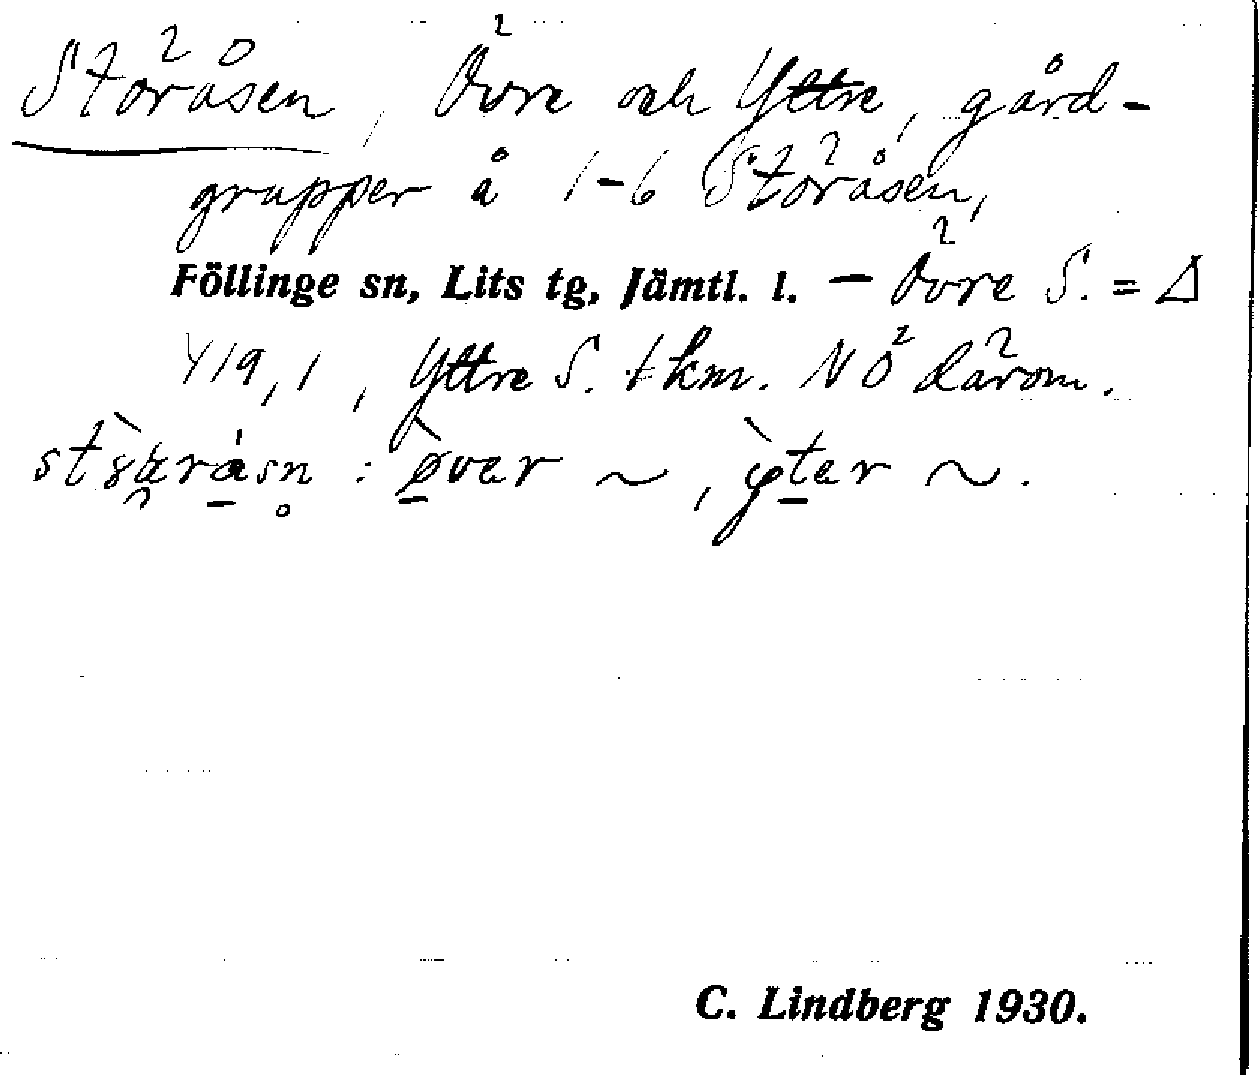 Störåsen, Övre och Yttre, gård-
grupper å 1-6 Störåsen,
Föllinge sn, Lits tg, Jämtl. l. – Övre S. = Δ
419,1, Yttre S. 1 km. NÖ därom.
: ~, ~.
C. Lindberg 1930.